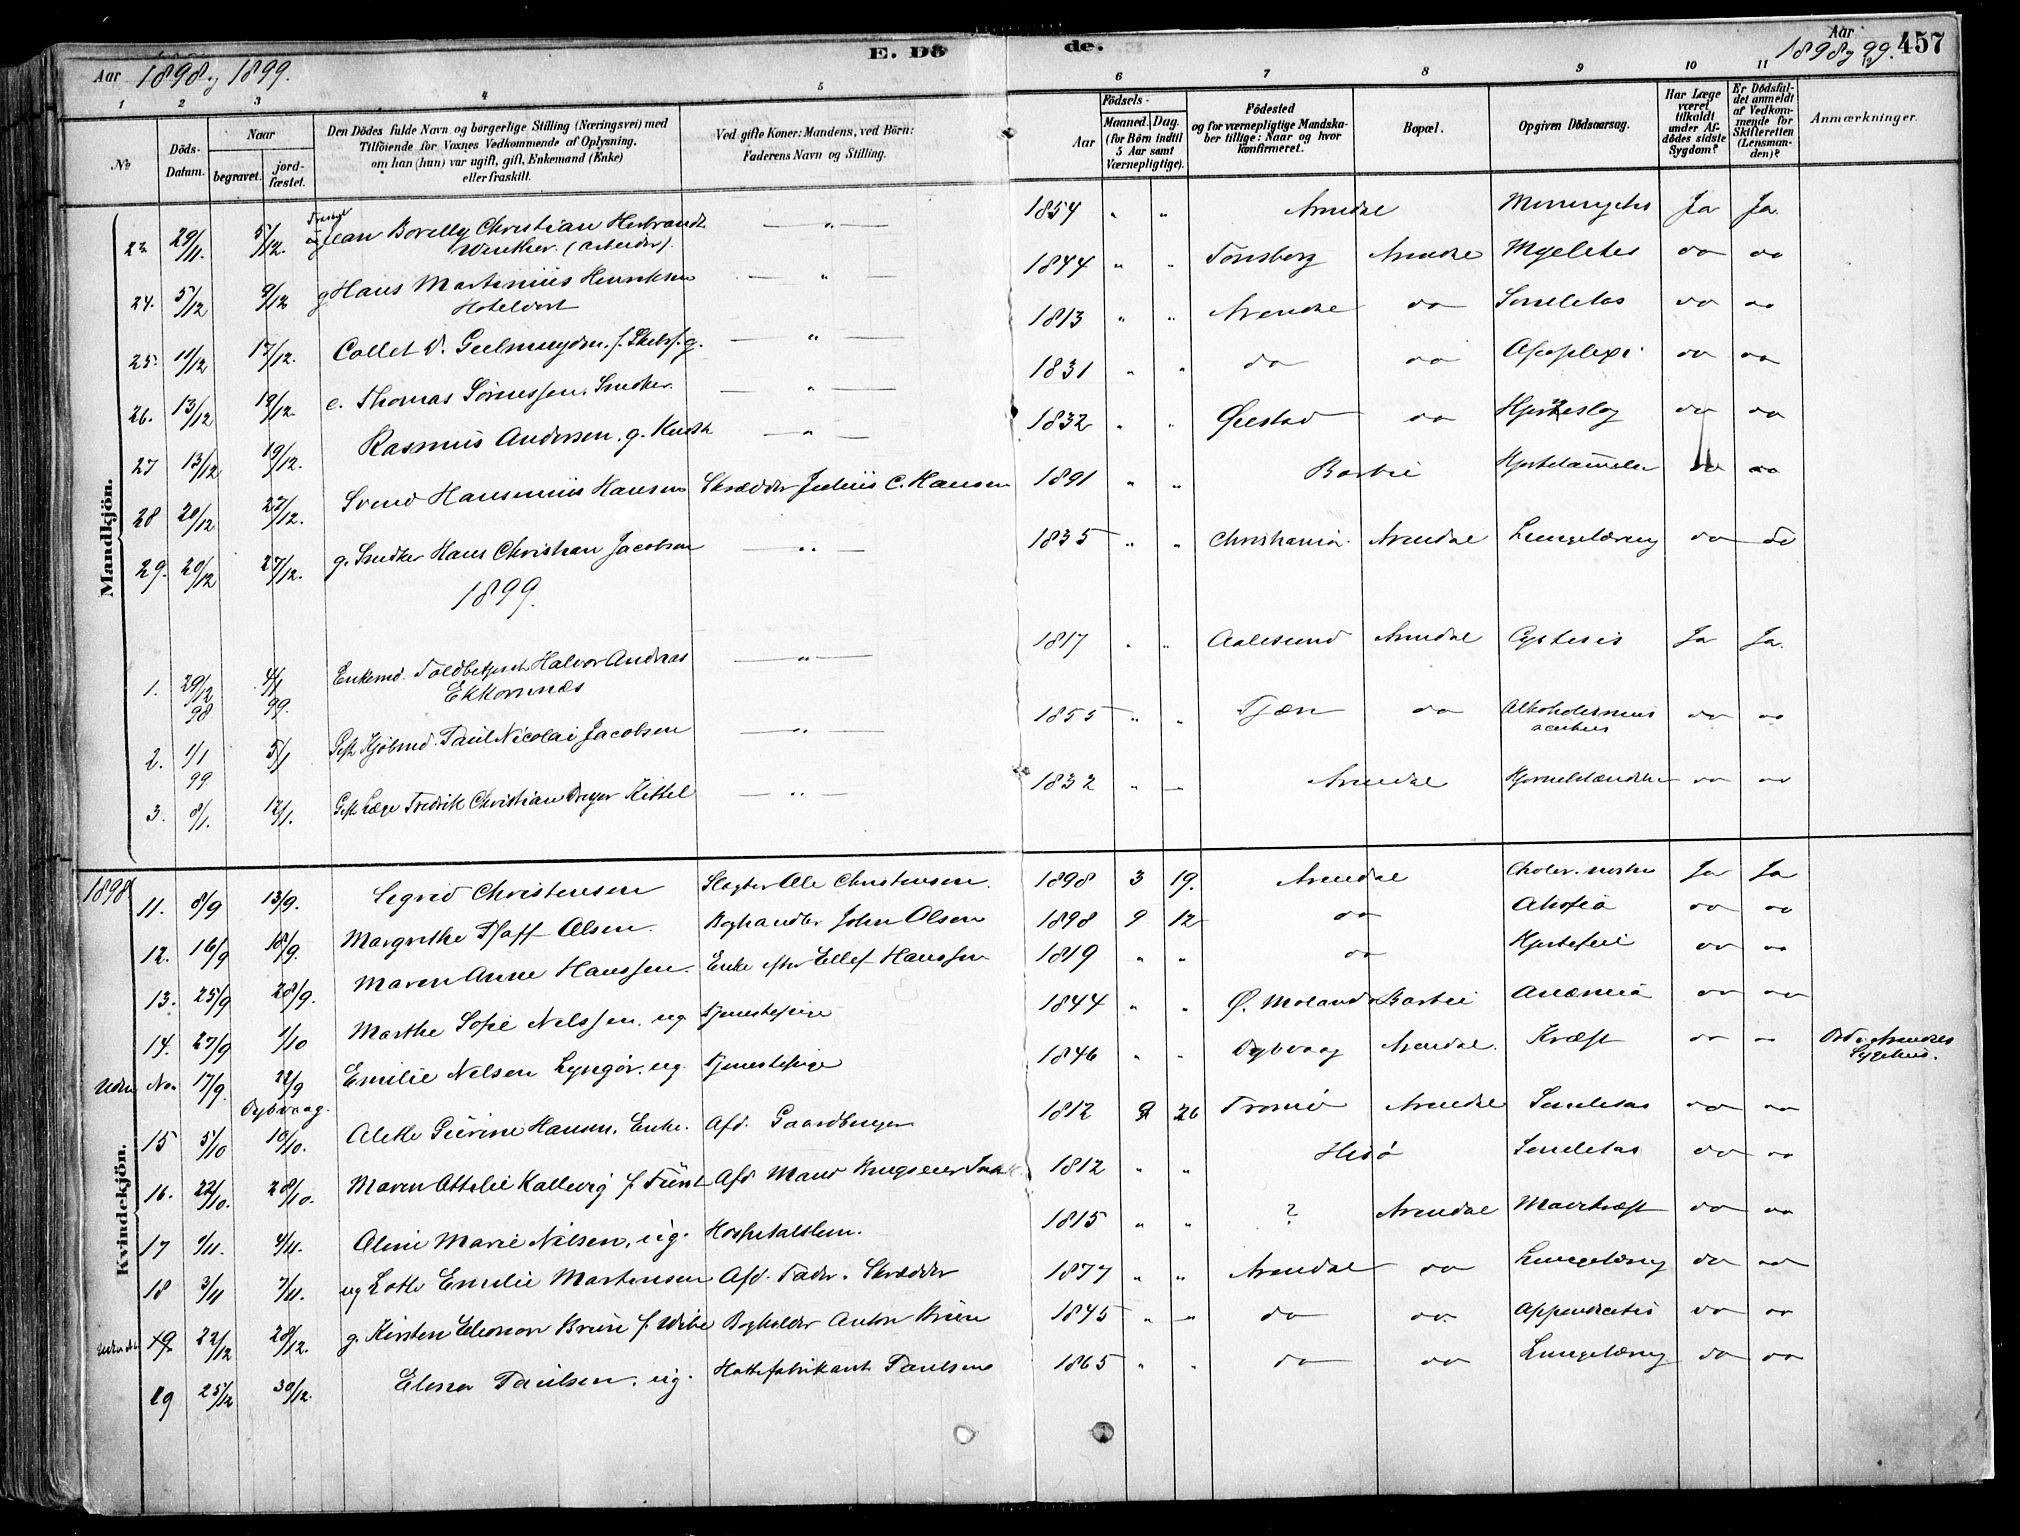 Aar 1898 og 1899.
E. Dö
de.
Aar 1898 og 99.
457
1 2 3 4 5 6 7 8 9 10 11
No
Döds-Datum.
Naar
begravet.
jord-fæstet.
Den Dödes fulde Navn og borgerlige Stilling (Næringsvei) med
Tilföiende for Voxnes Vedkommende af Oplysning,
om han (hun) var ugift, gift, Enkemand (Enke)
eller fraskilt.
Ved gifte Koner: Mandens, ved Börn:
Faderens Navn og Stilling.
Födsels-
Aar
Maaned. Dag.
(for Börn indtil
5 Aar samt
Værnepligtige).
Födested
og for værnepligtige Mandska-
ber tillige: Naar og hvor
konfirmeret.
Bopæl.
Opgiven Dödsaarsag.
Har Læge
været
tilkaldt
under Af-
dödes sidste
Sygdom?
Er Dödsfal-
det anmeldt
af Vedkom-
mende for
Skifteretten
(Lensman-
den)?
Anmærkninger.
Mandkjön.
29/11 5/12. Jean Borelly Christian Herbrandt — " — 1854 " " Arendal Ja Ja
Winther. (arbeider).
24. 5/12 9/12 g Hans Martinius Henriksen — " — 1844 " " Tönsberg Arendal do do
Hotelvert
25. 11/12 17/12. Collet V. Gulmuyden, f. Skibsf. g. — " — 1813 " " Arendal do Seneletas do do
26. 13/12 19/12. e. Thomas Sörenssen, Snedker. — " — 1831 " " do do Apoplexi do do
27 13/12 19/12. Rasmus Andersen, g. — " — 1832 " " Öiestad do Hjerteslag do do
28 20/12 27/12. Svend Hansenius Hansen Skrædder Julius C. Hansen 1891 " " Barbu do do
29. 20/12 27/12. g. Snedker Hans Christian Jacobsen — " — 1835 " " Christiania. Arendal Lungetæring do do
1899.
1. 29/12 98 4/1 99. Enkemd. Toldbetjent Halvor Andreas — " — 1817 " " Aalesund Arendal Cystitis Ja Ja.
Ekkornnæs
2. 1/1 99 5/1 Gift Kjöbmd. Paul Nicolai Jacobsen — " — 1855 " " do Alkoholismus do do
acutus
3. 8/1. 12/1. Gift Læge Fredrik Christian Dreyer Kittel — " — 1832 " — Arendal do do
Kvindekjön.
1898
11. 8/9 13/9. Sigrid Christensen Slagter Ole Christensen. 1898 3 19. Arendal Choler. nostras Ja Ja
12. 16/9 18/9. Margrethe Pfaff Olsen. Boghandler John Olsen 1898 9 12 do Atrofia do do
13. 25/9 28/9. Maren Anne Hanssen. Enke efter Ellef Hanssen 1819 " " do Hjertefeil do do
14. 27/9 1/10 Marthe Sofie Nelssen, ug. Tjenestepige 1844 " " Ö. Moland Barbu Anæmia do do
Uden No. 17/9. 22/9 Emilie Nelsen Lyngör, ug. Tjenestepige 1846 " " Dybvaag Arendal. Kræft do " Död i Arendals
Dybvaag. Sygehus.
15 5/10 10/10. Alethe Hansen, Enke. Afd. Gaardbruger 1812 9 26 Tromö Arendal Seneletas do do
16. 22/10. 28/10. Maren Ottilie Kallevig f. Fürst Afd. Mand 1812 " " Hisö Seneletas do do
17 1/11. 4/11. Oline Marie Nilsen, ug. Hospitalslem. 1815 " " ? Arendal Mavekræft do do
18 3/11 7/11. ug Lotte Emilie Mortensen Afd. Fader. Skrædder 1877 " " Arendal do Lungetæring do do
22/12 28/12. g. Kirsten Eleonore Bruu f. Wibe Bogholder Anton Bruu 1845 " — do do Appendicitis do do
19 25/12 30/12. Elena Paulsen, ug. Hattefabrikant Paulsen 1865 " " do do Lungetæring do do